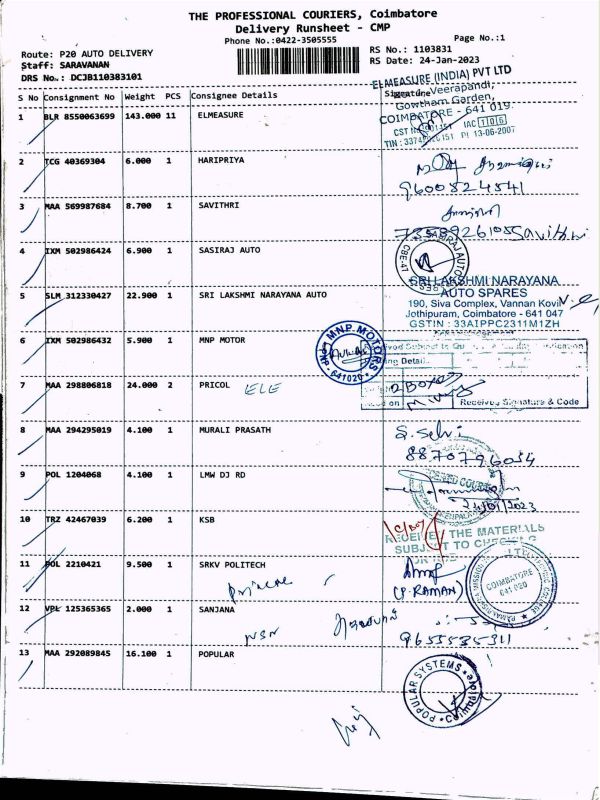 THE PROFESSIONAL COURIERS, Coimbatore
Delivery Runsheet - CMP
Phone No.:0422-3505555
Page No.:1
Route: P20 AUTO DELIVERY
RS No.: 1103831
Staff: SARAVANAN
RS Date: 24-Jan-2023
DRS No.: DCJB110383101
ELMEASURE (INDIA) PVT LTD
S No Consignment No Weight PCS Consignee Details Signature
Veerapandi,
Gowtham Garden,
COIMBATORE - 641 019
1 BLR 8550063699 143.000 11 ELMEASURE
CST No
IAC 106
TIN : Dt 13-06-2007
2 TCG 40369304 6.000 1 HARIPRIYA
9600824541
3 MAA 569987684 8.700 1 SAVITHRI
Savithri
4 IXM 502986424 6.900 1 SASIRAJ AUTO
SASIRAJ AUTO
CBE-41
5 SLM 312330427 22.900 1 SRI LAKSHMI NARAYANA AUTO
SRI LAKSHMI NARAYANA
AUTO SPARES
190, Siva Complex, Vannan Kovil
Jothipuram, Coimbatore - 641 047
GSTIN : 33AIPPC2311M1ZH
6 IXM 502986432 5.900 1 MNP MOTOR
MNP MOTORS
PNP - 641020
7 MAA 298806818 24.000 2 PRICOL
ELE
Received Signature & Code
8 MAA 294295019 4.100 1 MURALI PRASATH
S. Selvi
8870796034
9 POL 1204068 4.100 1 LMW DJ RD
24/01/2023
10 TRZ 42467039 6.200 1 KSB
RECEIVED THE MATERIALS
SUBJECT TO CHECKING
11 POL 2210421 9.500 1 SRKV POLITECH
(P. RAMAN)
COIMBATORE
641 020
12 VPL 125365365 2.000 1 SANJANA
NSN
9655535311
13 MAA 292089845 16.100 1 POPULAR
POPULAR SYSTEMS
Coimbatore